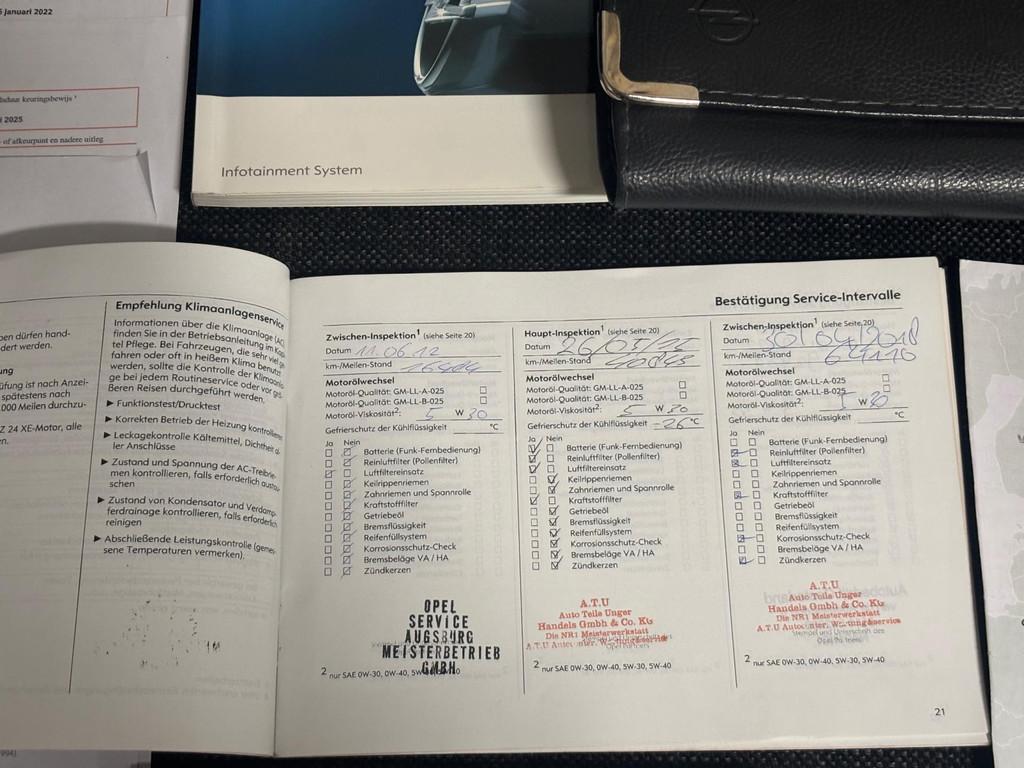 januari 2022
keuringsbewijs ¹
2025
of afkeurpunt en nadere uitleg
Infotainment System
dürfen hand-
dert werden.
ung
üfung ist nach Anzei-
spätestens nach
000 Meilen durchzu-
Z 24 XE-Motor, alle
Empfehlung Klimaanlagenservice
Informationen über die Klimaanlage (AC)
finden Sie in der Betriebsanleitung im
tel Pflege. Bei Fahrzeugen, die sehr
fahren oder oft in heißem Klima benutzt
werden, sollte die Kontrolle der
ge bei jedem Routineservice oder vor
ßeren Reisen durchgeführt werden.
► Funktionstest/Drucktest
► Korrekten Betrieb der Heizung
► Leckagekontrolle Kältemittel,
ler Anschlüsse
► Zustand und Spannung der
men kontrollieren, falls erforderlich
schen
► Zustand von Kondensator und
ferdrainage kontrollieren, falls erforderlich
reinigen
► Abschließende Leistungskontrolle
sene Temperaturen vermerken).
Bestätigung Service-Intervalle
Zwischen-Inspektion¹ (siehe Seite 20)
Datum 11.06.12
km-/Meilen-Stand
Motorölwechsel
Motoröl-Qualität: GM-LL-A-025 ☐
Motoröl-Qualität: GM-LL-B-025 ☐
Motoröl-Viskosität²: 5 W 30
Gefrierschutz der Kühlflüssigkeit °C
Ja Nein
Batterie (Funk-Fernbedienung)
Reinluftfilter (Pollenfilter)
Luftfiltereinsatz
Keilrippenriemen
Zahnriemen und Spannrolle
Kraftstofffilter
Getriebeöl
Bremsflüssigkeit
Reifenfüllsystem
Korrosionsschutz-Check
Bremsbeläge VA / HA
Zündkerzen
OPEL
SERVICE
AUGSBURG
MEISTERBETRIEB
GMBH
² nur SAE 0W-30, 0W-40, 5W-30, 5W-40
Haupt-Inspektion¹ (siehe Seite 20)
Datum
km-/Meilen-Stand
Motorölwechsel
Motoröl-Qualität: GM-LL-A-025 ☐
Motoröl-Qualität: GM-LL-B-025 ☐
Motoröl-Viskosität²: 5 W 30
Gefrierschutz der Kühlflüssigkeit -26 °C
Ja Nein
Batterie (Funk-Fernbedienung)
Reinluftfilter (Pollenfilter)
Luftfiltereinsatz
Keilrippenriemen
Zahnriemen und Spannrolle
Kraftstofffilter
Getriebeöl
Bremsflüssigkeit
Reifenfüllsystem
Korrosionsschutz-Check
Bremsbeläge VA / HA
Zündkerzen
A.T.U
Auto Teile Unger
Handels Gmbh & Co. KG
Die NR1 Meisterwerkstatt
A.T.U
² nur SAE 0W-30, 0W-40, 5W-30, 5W-40
Zwischen-Inspektion¹ (siehe Seite 20)
Datum 30/04/2018
km-/Meilen-Stand 64110
Motorölwechsel
Motoröl-Qualität: GM-LL-A-025 ☐
Motoröl-Qualität: GM-LL-B-025 ☐
Motoröl-Viskosität²: W 30
Gefrierschutz der Kühlflüssigkeit °C
Ja Nein
Batterie (Funk-Fernbedienung)
Reinluftfilter (Pollenfilter)
Luftfiltereinsatz
Keilrippenriemen
Zahnriemen und Spannrolle
Kraftstofffilter
Getriebeöl
Bremsflüssigkeit
Reifenfüllsystem
Korrosionsschutz-Check
Bremsbeläge VA / HA
Zündkerzen
A.T.U
Auto Teile Unger
Handels Gmbh & Co. KG
Die NR1 Meisterwerkstatt
A.T.U
² nur SAE 0W-30, 0W-40, 5W-30, 5W-40
21